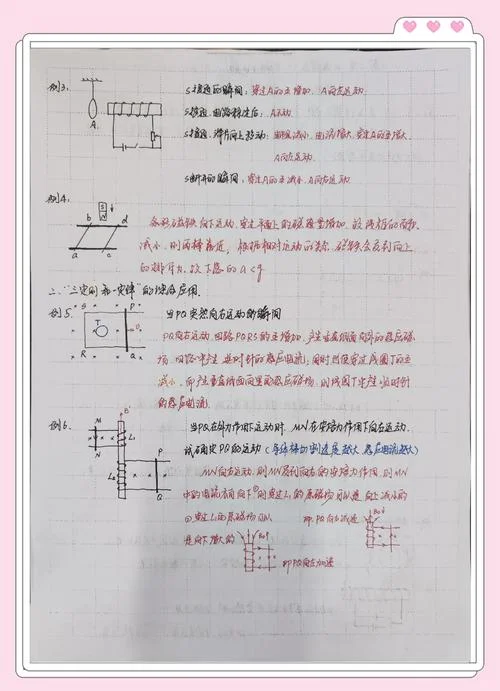 例3.
S接通的瞬间：穿过A的Φ增加，A向左运动.
S接通，电路稳定后：A不动.
S接通，滑片向上移动：电阻减小，电流增大，穿过A的Φ增大，
A向左运动.
S断开的瞬间：穿过A的Φ减小，A向右运动.
A
例4.
S
N
b d
a c
条形磁铁向下运动，穿过平面上的磁通量增加，故线框的面积
减小，则两棒靠近，根据相对运动的关系，磁铁会受到向上
的排斥力，故下落的a<g.
二、"三定则和一定律"的综合应用.
例5.
S P
T
R Q
当PQ突然向右运动的瞬间
PQ向右运动，回路PQRS的Φ增加，产生垂直纸面向外的感应磁
场，回路中产生逆时针的感应电流；同时又使穿过圆T的Φ
减小，而产生垂直纸面向里的感应磁场，则线圈T中产生顺时针
的感应电流.
例6
M
N
L₁
L₂
P
Q
当PQ在外力作用下运动时，MN在安培力作用下向右运动，
试确定PQ的运动（导体棒切割速度越大，感应电流越大）
MN向右运动，则MN受到向右的安培力作用，则MN
中的电流方向向下
①穿过L₁的原磁场可以是向上减小的
②穿过L₁的原磁场可以
是向下增大的
即PQ向右减速
即PQ向左加速